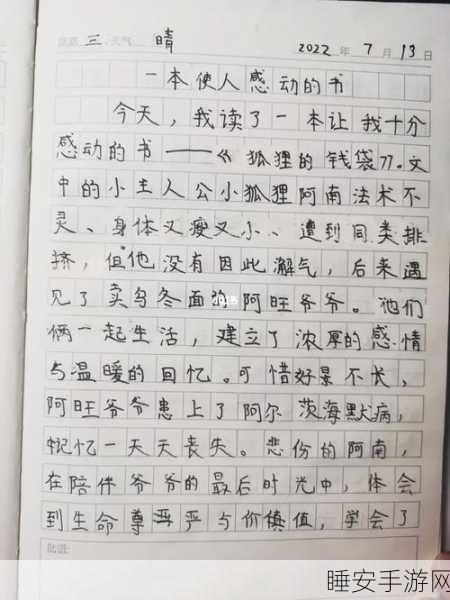 星期 三 天气 晴 2022年7月13日
一本使人感动的书
今天，我读了一本让我十分
感动的书——《狐狸的钱袋》。文
中的小主人公小狐狸阿南法术不
灵、身体又瘦又小、遭到同类排
挤，但他没有因此澥气，后来遇
见了卖乌冬面的阿旺爷爷。他们
俩一起生活，建立了浓厚的感情
与温暖的回忆。可惜好景不长，
阿旺爷爷患上了阿尔茨海默病，
记忆一天天丧失。悲伤的阿南，
在陪伴爷爷的最后时光中，体会
到生命尊严与价值，学会了
批语:
睡安手游网